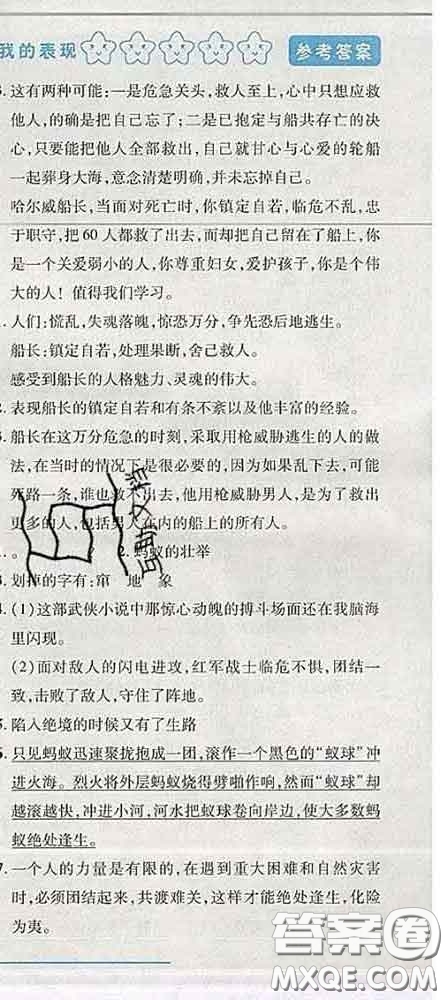 我的表现
参考答案
这有两种可能:一是危急关头,救人至上,心中只想应救
他人,的确是把自己忘了;二是已抱定与船共存亡的决
心,只要能把他人全部救出,自己就甘心与心爱的轮船
一起葬身大海,意念清楚明确,并未忘掉自己。
哈尔威船长,当面对死亡时,你镇定自若,临危不乱,忠
于职守,把60人都救了出去,而却把自己留在了船上,你
是一个关爱弱小的人,你尊重妇女,爱护孩子,你是个伟
大的人! 值得我们学习。
人们:慌乱,失魂落魄,惊恐万分,争先恐后地逃生。
船长:镇定自若,处理果断,舍己救人。
感受到船长的人格魅力、灵魂的伟大。
2. 表现船长的镇定自若和有条不紊以及他丰富的经验。
船长在这万分危急的时刻,采取用枪威胁逃生的人的做
法,在当时的情况下是很必要的,因为如果乱下去,可能
死路一条,谁也救不出去,他用枪威胁男人,是为了救出
更多的人,包括男人在内的船上的所有人。
。 ? 2.蚂蚁的壮举
划掉的字有:窜 地 象
4. (1)这部武侠小说中那惊心动魄的搏斗场面还在我脑海
里闪现。
(2)面对敌人的闪电进攻,红军战士临危不惧,团结一
致,击败了敌人,守住了阵地。
5. 陷入绝境的时候又有了生路
只见蚂蚁迅速聚拢抱成一团,滚作一个黑色的“蚁球”冲
进火海。烈火将外层蚂蚁烧得劈啪作响,然而“蚁球”却
越滚越快,冲进小河,河水把蚁球卷向岸边,使大多数蚂
蚁绝处逢生。
7. 一个人的力量是有限的,在遇到重大困难和自然灾害
时,必须团结起来,共渡难关,这样才能绝处逢生,化险
为夷。
答案圈
MXQE.COM